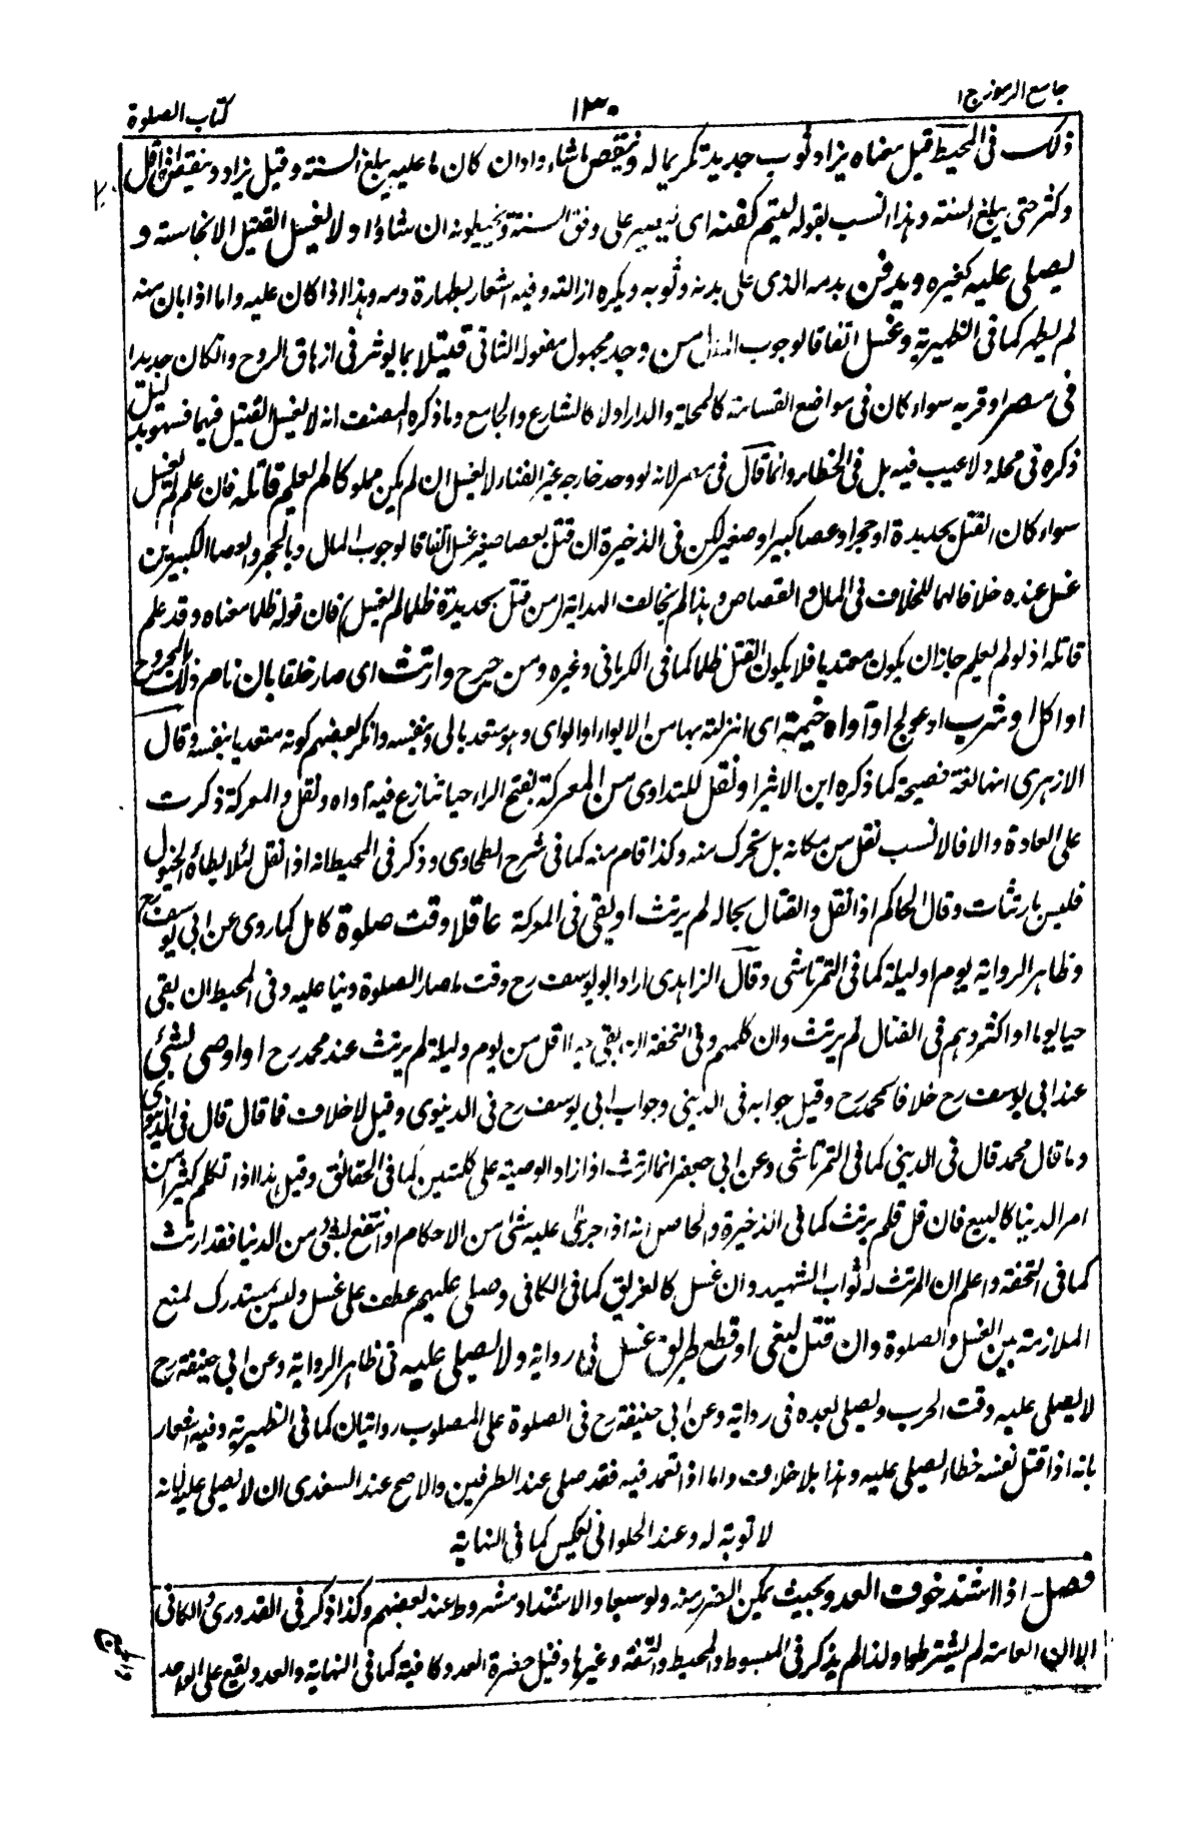 جامع الرموز ج١
١٣٠
كتاب الصلوة
ذلك فى المحيط قيل معناه يزاد ثوب جديد تكريما له وينقص ما شاء وا دان كان ما عليه يبلغ السنة وقيل يزاد وينقص اقل
وكثر حتى يبلغ السنة وهذا انسب بقوله ليتم كفنه اى يصير على وفق السنة ويخيطونه ان شاؤا ولا يغسل القتيل الا نجاسته و
يصلى عليه كغيره ويدفن بدمه الذى على بدنه وثوبه ويكره ازالته وفيه اشعار بطهارة دمه وهذا اذا كان عليه واما اذا بان منه
لم يطهر كما فى الظهيرية وغسل اتفاقا لوجوب المال من وجد مجهول مفعوله الثانى قتيلا بما يوثر فى ازهاق الروح والكان جديدا
فى مصر او قرية سواء كان فى مواضع القسامة كالمحلة والدار اولا كالشارع والجامع وما ذكره المصنف انه لا يغسل القتيل فيها فسهو بدليل
ذكره فى محله ولا عيب فيه بل فى الخطاء وانما قال فى مصر لانه لو وجد خارجه غير الفناء لا يغسل ان لم يكن مملوكا لم يعلم قاتله فان علم لم يغسل
سواء كان القتل بحديدة او حجر او عصا كبير او صغير لكن فى الذخيرة ان قتل بعصا صغير غسل اتفاقا لوجوب المال وبالحجر والعصا الكبيرين
غسل عنده خلافا لهما للخلاف فى المال والقصاص وهذا لم يخالف الهداية (من قتل بحديدة ظلما لم يغسل) فان قوله ظلما معناه وقد علم
قاتله اذ لو لم يعلم جاز ان يكون معتديا فلا يكون القتل ظلما كما فى الكرمانى وغيره ومن جرح وارتث اى صار خلقا بان نام ذلك المجروح
او اكل او شرب او عولج او آواه خيمة اى انزلته بها من الايواء او الواى وهو متعد بالى وبنفسه وانكر بعضهم كونه متعديا بنفسه وقال
الازهرى انها لغة فصيحة كما ذكره ابن الاثير او نقل للتداوى من المعركة بفتح الراء حيا تنازع فيه آواه ونقل والمعركة ذكرت
على العادة والا فالانسب نقل من مكانه بل تحرك منه وكذا قام منه كما فى شرح الطحاوى وذكر فى المحيط انه اذا نقل لئلا يطأه الخيول
فليس بارتثاث وقال الحاكم اذا نقل والقتال بحاله لم يرتث او بقى فى المعركة عاقلا وقت صلوة كامل كما روى عن ابى يوسف رح
وظاهر الرواية يوم او ليلة كما فى التمرتاشى وقال الزاهدى اراد ابو يوسف رح وقت ما صار الصلوة دينا عليه وفى المحيط ان بقى
حيا يوما او اكثر وهم فى القتال لم يرتث وان كلمهم وفى التحفة ان بقى حيا اقل من يوم وليلة لم يرتث عند محمد رح او اوصى بشئ
عند ابى يوسف رح خلافا لمحمد رح وقيل جوابه فى الدينى وجواب ابى يوسف رح فى الدنيوى وقيل لا خلاف فما قال قال فى الدنيوى
وما قال محمد قال فى الدينى كما فى التمرتاشى وعن ابى جعفر انما ارتث اذا زاد الوصية على كلمتين كما فى الحقائق وقيل هذا اذا تكلم كثيرا من
امر الدنيا كالبيع فان قل فلم يرتث كما فى الذخيرة والحاصل انه اذا جرى عليه شئ من الاحكام او انتفع بشئ من الدنيا فقد ارتث
كما فى التحفة واعلم ان المرتث له ثواب الشهيد وان غسل كالغريق كما فى الكافى وصلى عليهم عطف على غسل وليس بمستدرك لمنع
الملازمة بين الغسل والصلوة وان قتل لبغى او قطع طريق غسل فى رواية ولا يصلى عليه فى ظاهر الرواية وعن ابى حنيفة رح
لا يصلى عليه وقت الحرب ويصلى بعده فى رواية وعن ابى حنيفة رح فى الصلوة على المصلوب روايتان كما فى الظهيرية وفيه اشعار
بانه اذا قتل نفسه خطاء يصلى عليه وهذا بلا خلاف واما اذا تعمد فيه فقد صلى عند الطرفين والاصح عند السغدى ان لا يصلى عليه لانه
لا توبة له وعند الحلوانى بعكس كما فى النهاية
فصل اذا اشتد خوف العدو بحيث يمكن الضرر منه ولو سبعا والاشتداد مشروط عند بعضهم وكذا ذكر فى القدورى والكافى
الا ان العامة لم يشترطها ولذا لم يذكر فى المبسوط والمحيط والتحفة وغيرها وقيل حضرة العدو كافية كما فى النهاية والعدو يقع على الواحد